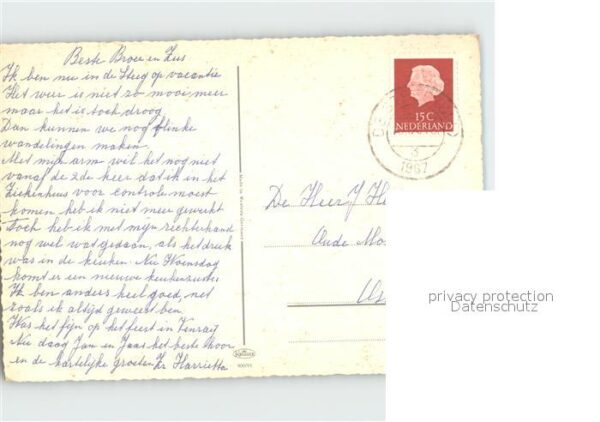 Beste Broer en Zus
Ik ben nu in de Steeg op vacantie
Het weer is niet zo mooi meer
maar het is toch droog.
Dan kunnen we nog flinke
wandelingen maken.
Met mijn arm wil het nog niet
vanaf de 2de keer dat ik in het
Ziekenhuis voor controle moest
komen heb ik niet meer gewerkt
Toch heb ik met mijn rechterhand
nog wel wat gedaan, als het druk
was in de keuken. Nu Woensdag
komt er een nieuwe keukenzuster.
Ik ben anders heel goed, net
zoals ik altijd geweest ben.
Was het fijn op het feest in Venray
Nu dag Jan en Jaas het beste hoor
en de hartelijke groeten Zr Harrietta
15 C
NEDERLAND
1967
De Heer J
Oude
privacy protection
Datenschutz